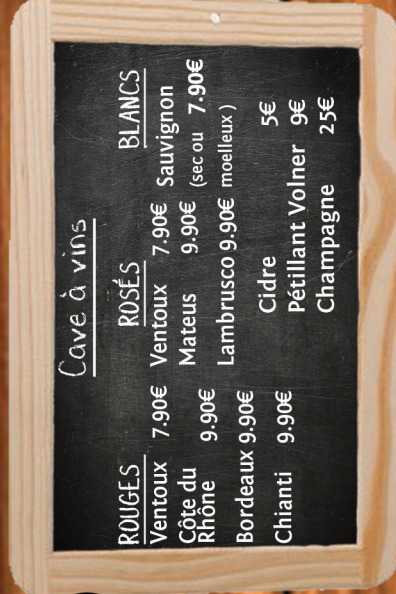 Cave à vins
ROUGES
Ventoux 7.90€
Côte du
Rhône 9.90€
Bordeaux 9.90€
Chianti 9.90€
ROSÉS
Ventoux 7.90€
Mateus 9.90€
Lambrusco 9.90€
BLANCS
Sauvignon
(sec ou 7.90€
moelleux )
Cidre 5€
Pétillant Volner 9€
Champagne 25€